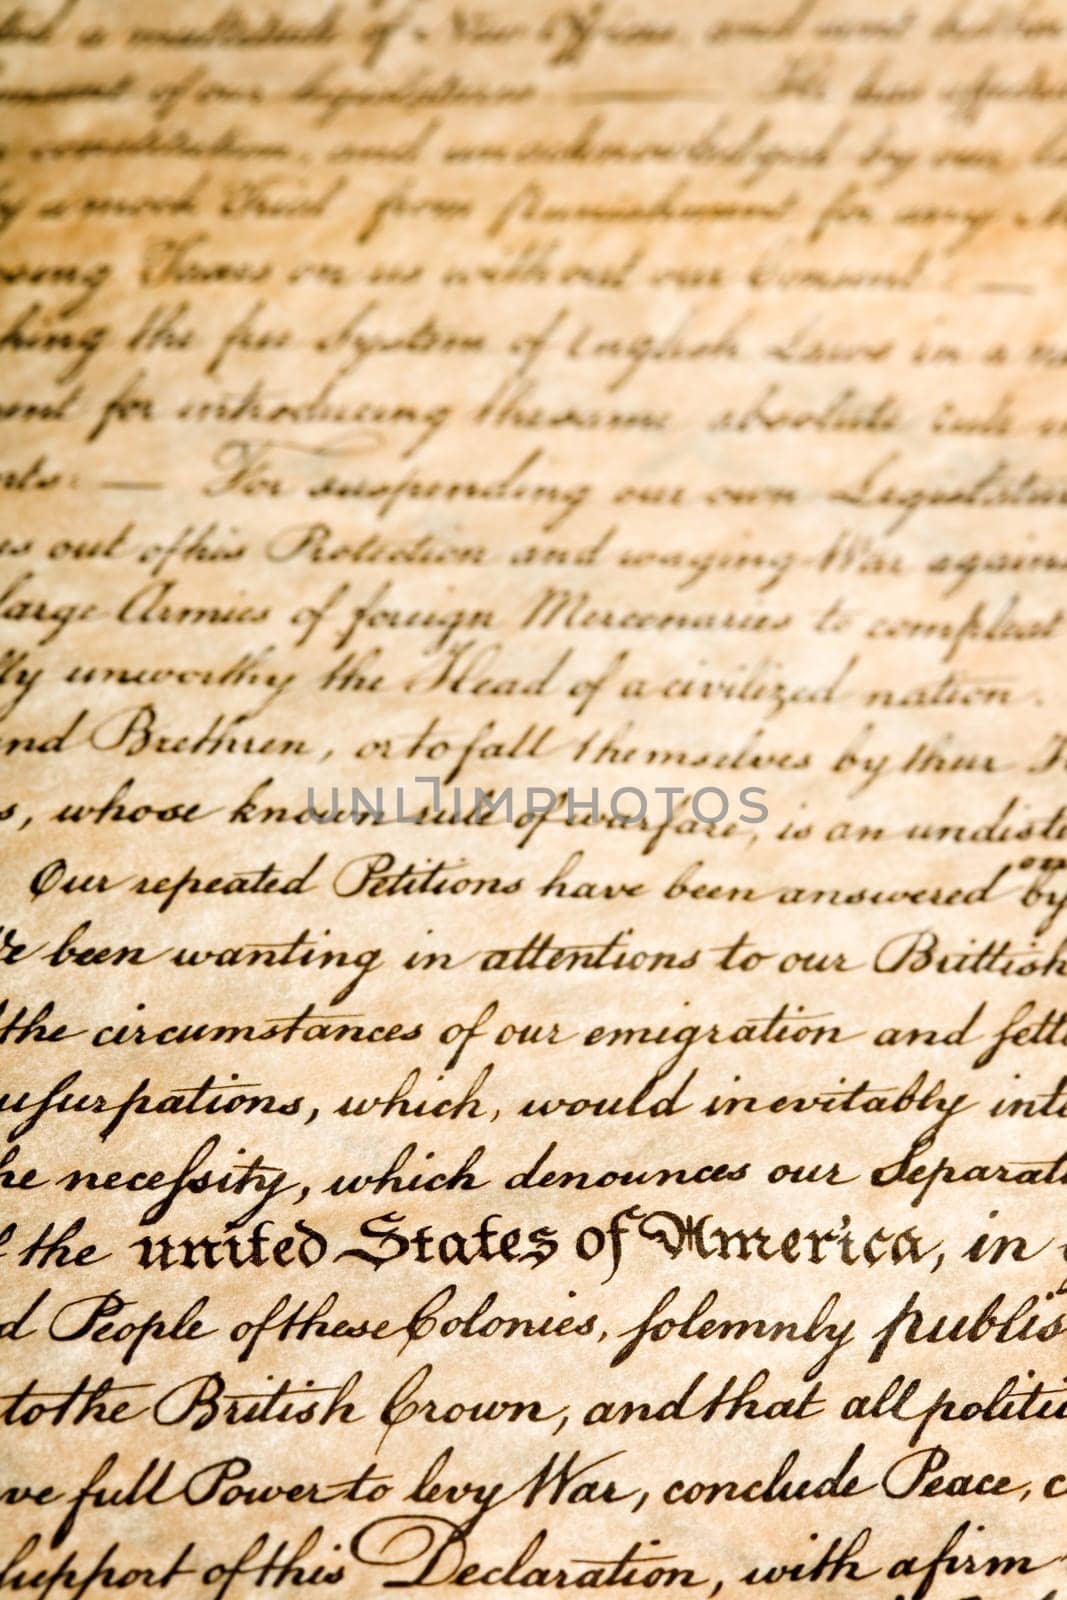 a multitude of New Offices, and sent hither
of our legislatures He has affected
constitution, and unacknowledged by our
by a mock Trial from Punishment for any
Taxes on us without our Consent: —
the free System of English Laws in a
for introducing thesame absolute rule
— For suspending our own
out of his Protection and waging War
large Armies of foreign Mercenaries to compleat
unworthy the Head of a civilized nation.
Brethren, or to fall themselves by their
, whose known rule of warfare, is an
UNLIMPHOTOS
Our repeated Petitions have been answered by
been wanting in attentions to our Brittish
the circumstances of our emigration and
usurpations, which, would inevitably
necessity, which denounces our
the united States of America, in
People of these Colonies, solemnly
to the British Crown, and that all
full Power to levy War, conclude Peace,
support of this Declaration, with a firm